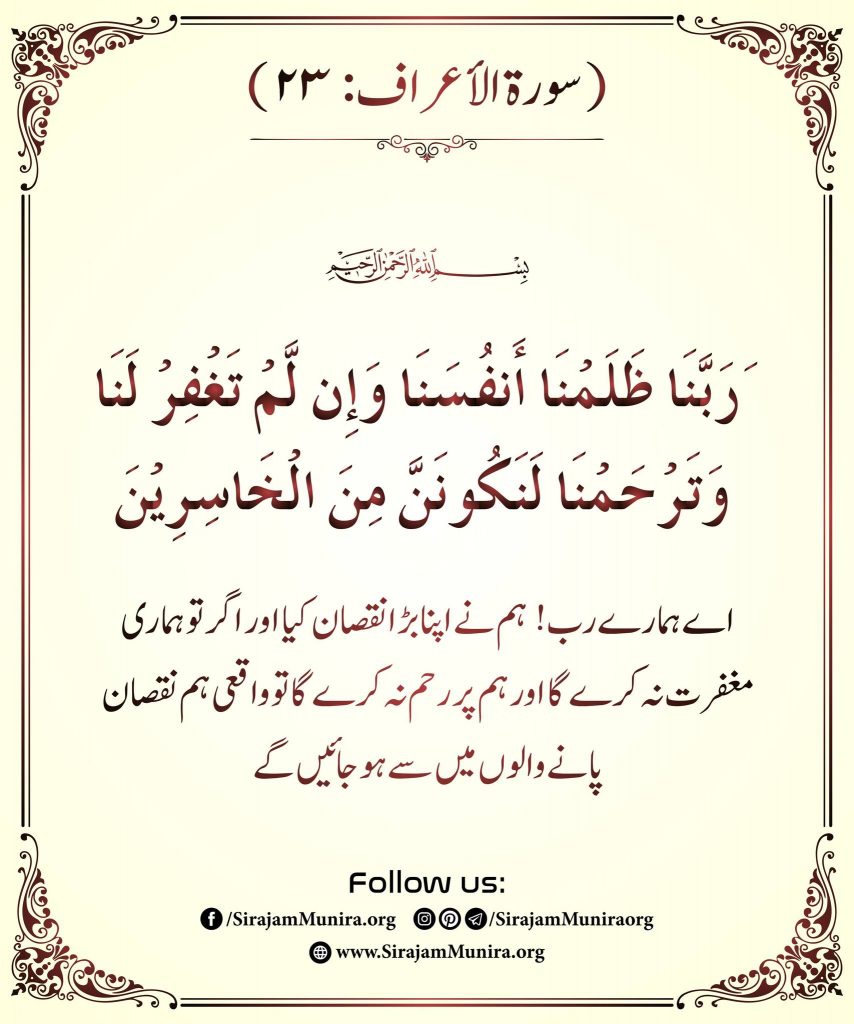 (سورۃ الأعراف: ۲۳)
بِسْمِ اللهِ الرَّحْمٰنِ الرَّحِيْمِ
َرَبَّنَا ظَلَمْنَا أَنفُسَنَا وَإِن لَّمْ تَغْفِرْ لَنَا
وَتَرْحَمْنَا لَنَكُونَنَّ مِنَ الْخَاسِرِيْنَ
اے ہمارے رب! ہم نے اپنا بڑا نقصان کیا اور اگر تو ہماری
مغفرت نہ کرے گا اور ہم پر رحم نہ کرے گا تو واقعی ہم نقصان
پانے والوں میں سے ہو جائیں گے
Follow us:
/SirajamMunira.org /SirajamMuniraorg
www.SirajamMunira.org